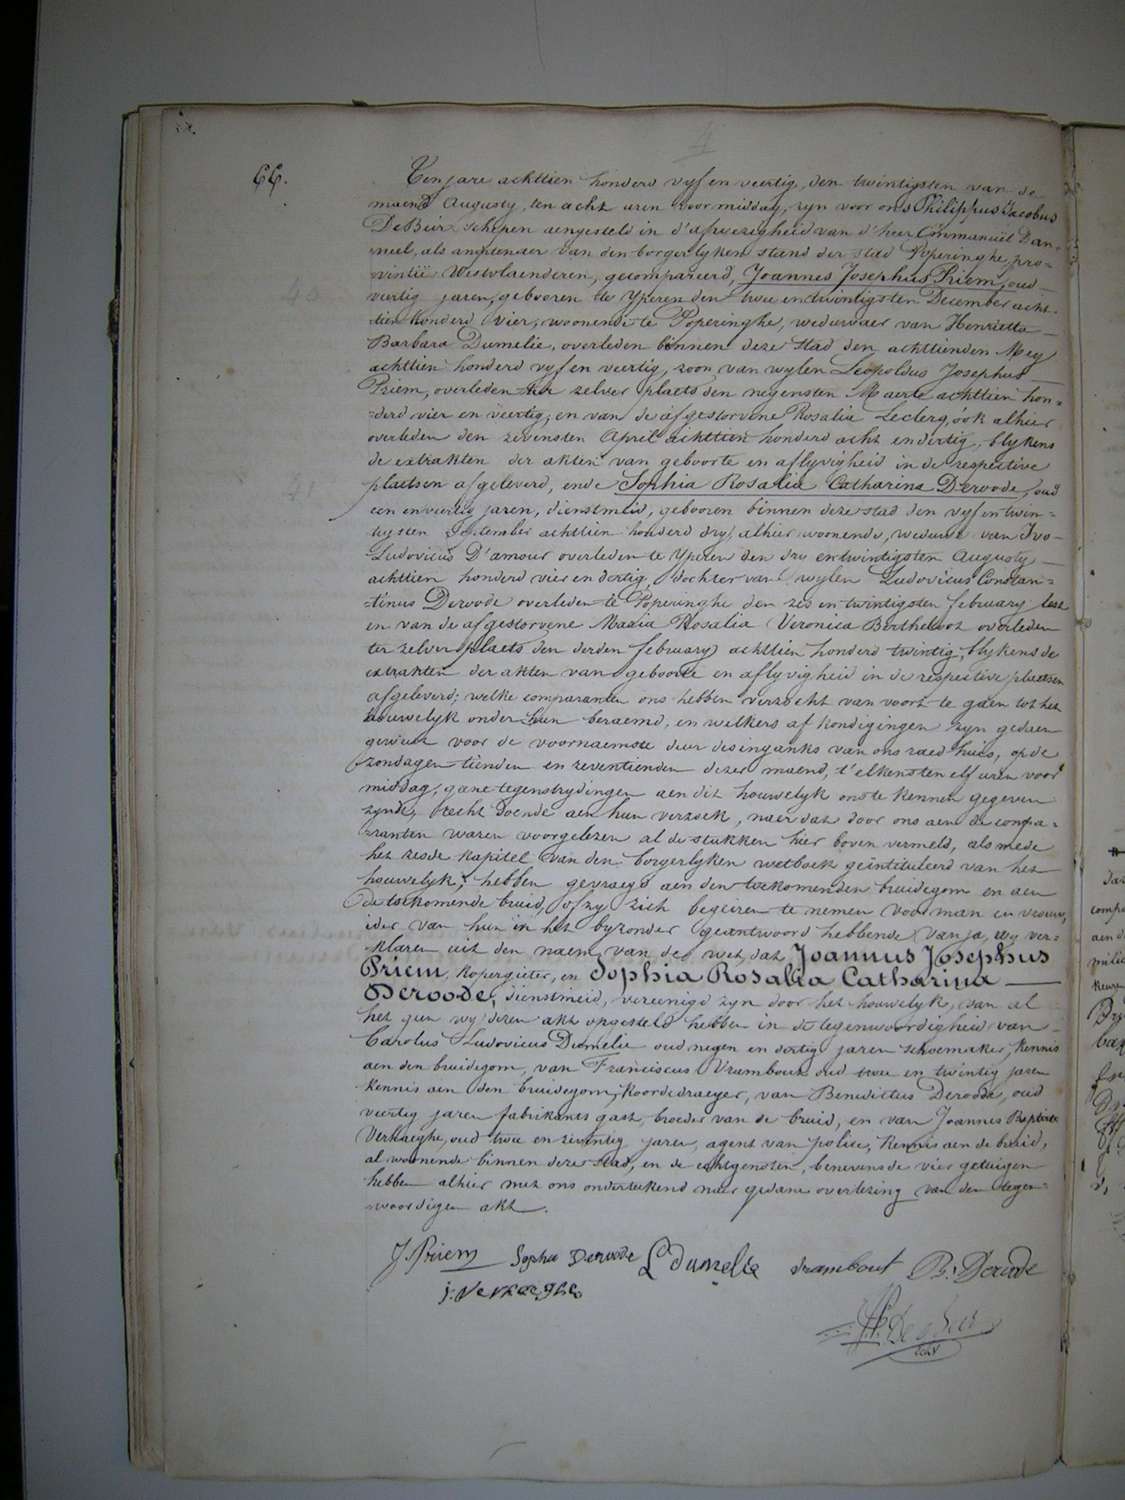 66.
Ten jare achttien honderd vyf en veertig, den twintigsten van de
maend Augusty, ten acht uren voor middag, zyn voor ons Philippus Jacobus
De Beir schepen aengesteld in d'afwezigheid van d'heer Emmanuël Dam-
meel, als amptenaer van den borgerlyken stand der stad Poperinghe, pro-
vintie Westvlaenderen, gecompareerd, Joannes Josephus Priem, oud
veertig jaren, gebooren te Yperen den twee en twintigsten December acht-
tien honderd vier, woonende te Poperinghe, weduwaer van Henrietta
Barbara Dumelie, overleden binnen deze stad den achttienden Mey
achttien honderd vyf en veertig, zoon van wylen Leopoldus Josephus
Priem, overleden ter zelver plaets den negensten Maerte achttien hon-
derd vier en veertig, en van de afgestorvene Rosalia Leclerg, ook alhier
overleden den zevensten April achttien honderd acht en dertig, blykens
de extrakten der akten van geboorte en aflyvigheid in de respective
plaetsen afgeleverd, ende Sophia Rosalia Catharina Deroode, oud
een en veertig jaren, dienstmeid, gebooren binnen deze stad den vyf en twin-
tigsten September achttien honderd dry, alhier woonende, weduwe van Ivo
Ludovicus D'amour overleden te Yperen den dry en twintigsten Augusty
achttien honderd vier en dertig, dochter van wylen Ludovicus Constan-
tinus Deroode overleden te Poperinghe den zes en twintigsten february lest
en van de afgestorvene Maria Rosalia Veronica Bertheloot overleden
ter zelver plaets den derden february achttien honderd twintig, blykens de
extrakten der akten van geboorte en aflyvigheid in de respective plaetsen
afgeleverd; welke comparanten ons hebben verzocht van voort te gaen tot het
houwelyk onder hun beraemd, en welkers afkondigingen zyn gedaen
geweest voor de voornaemste deur des ingangs van ons raedhuis, op de
zondagen tienden en zeventienden dezer maend, t'elkens ten elf uren voor
middag, gaene tegenstrydingen aen dit houwelyk ons te kennen gegeven
zynde, recht doende aen hun verzoek, naer dat door ons aen de compa-
ranten waren voorgelezen al de stukken hier boven vermeld, als mede
het zesde kapitel van den borgerlyken wetboek geïntituleerd van het
houwelyk, hebben gevraegd aen den toekomenden bruidegom en aen
de toekomende bruid, of zy zich begeiren te nemen voor man en vrouw,
ider van hun in het byzonder geantwoord hebbende van ja, wy ver-
klaren uit den naem van de wet, dat Joannus Josephus
Priem, kopergieter, en Sophia Rosalia Catharina
Deroode, dienstmeid, vereenigd zyn door het houwelyk, van al
het geen wy dezen akt opgesteld hebben in de tegenwoordigheid van
Carolus Ludovicus Dumelie oud negen en dertig jaren schoemaker, kennis
aen den bruidegom, van Franciscus Vrambout oud twee en twintig jaren
kennis aen den bruidegom, koordedraeyer, van Benedictus Deroode, oud
veertig jaren fabrikants gast, broeder van de bruid, en van Joannes Baptiste
Verhaeghe, oud twee en zeventig jaren, agent van police, kennis aen de bruid,
al woonende binnen deze stad, en de echtgenoten, benevens de vier getuigen
hebben alhier met ons onderteekend naer gedane overlezing van den tegen-
woordigen akt.
J. Priem Sophie Deroode L Dumelie vrambout B. Deroode
j. Verhaeghe
P. De Beir